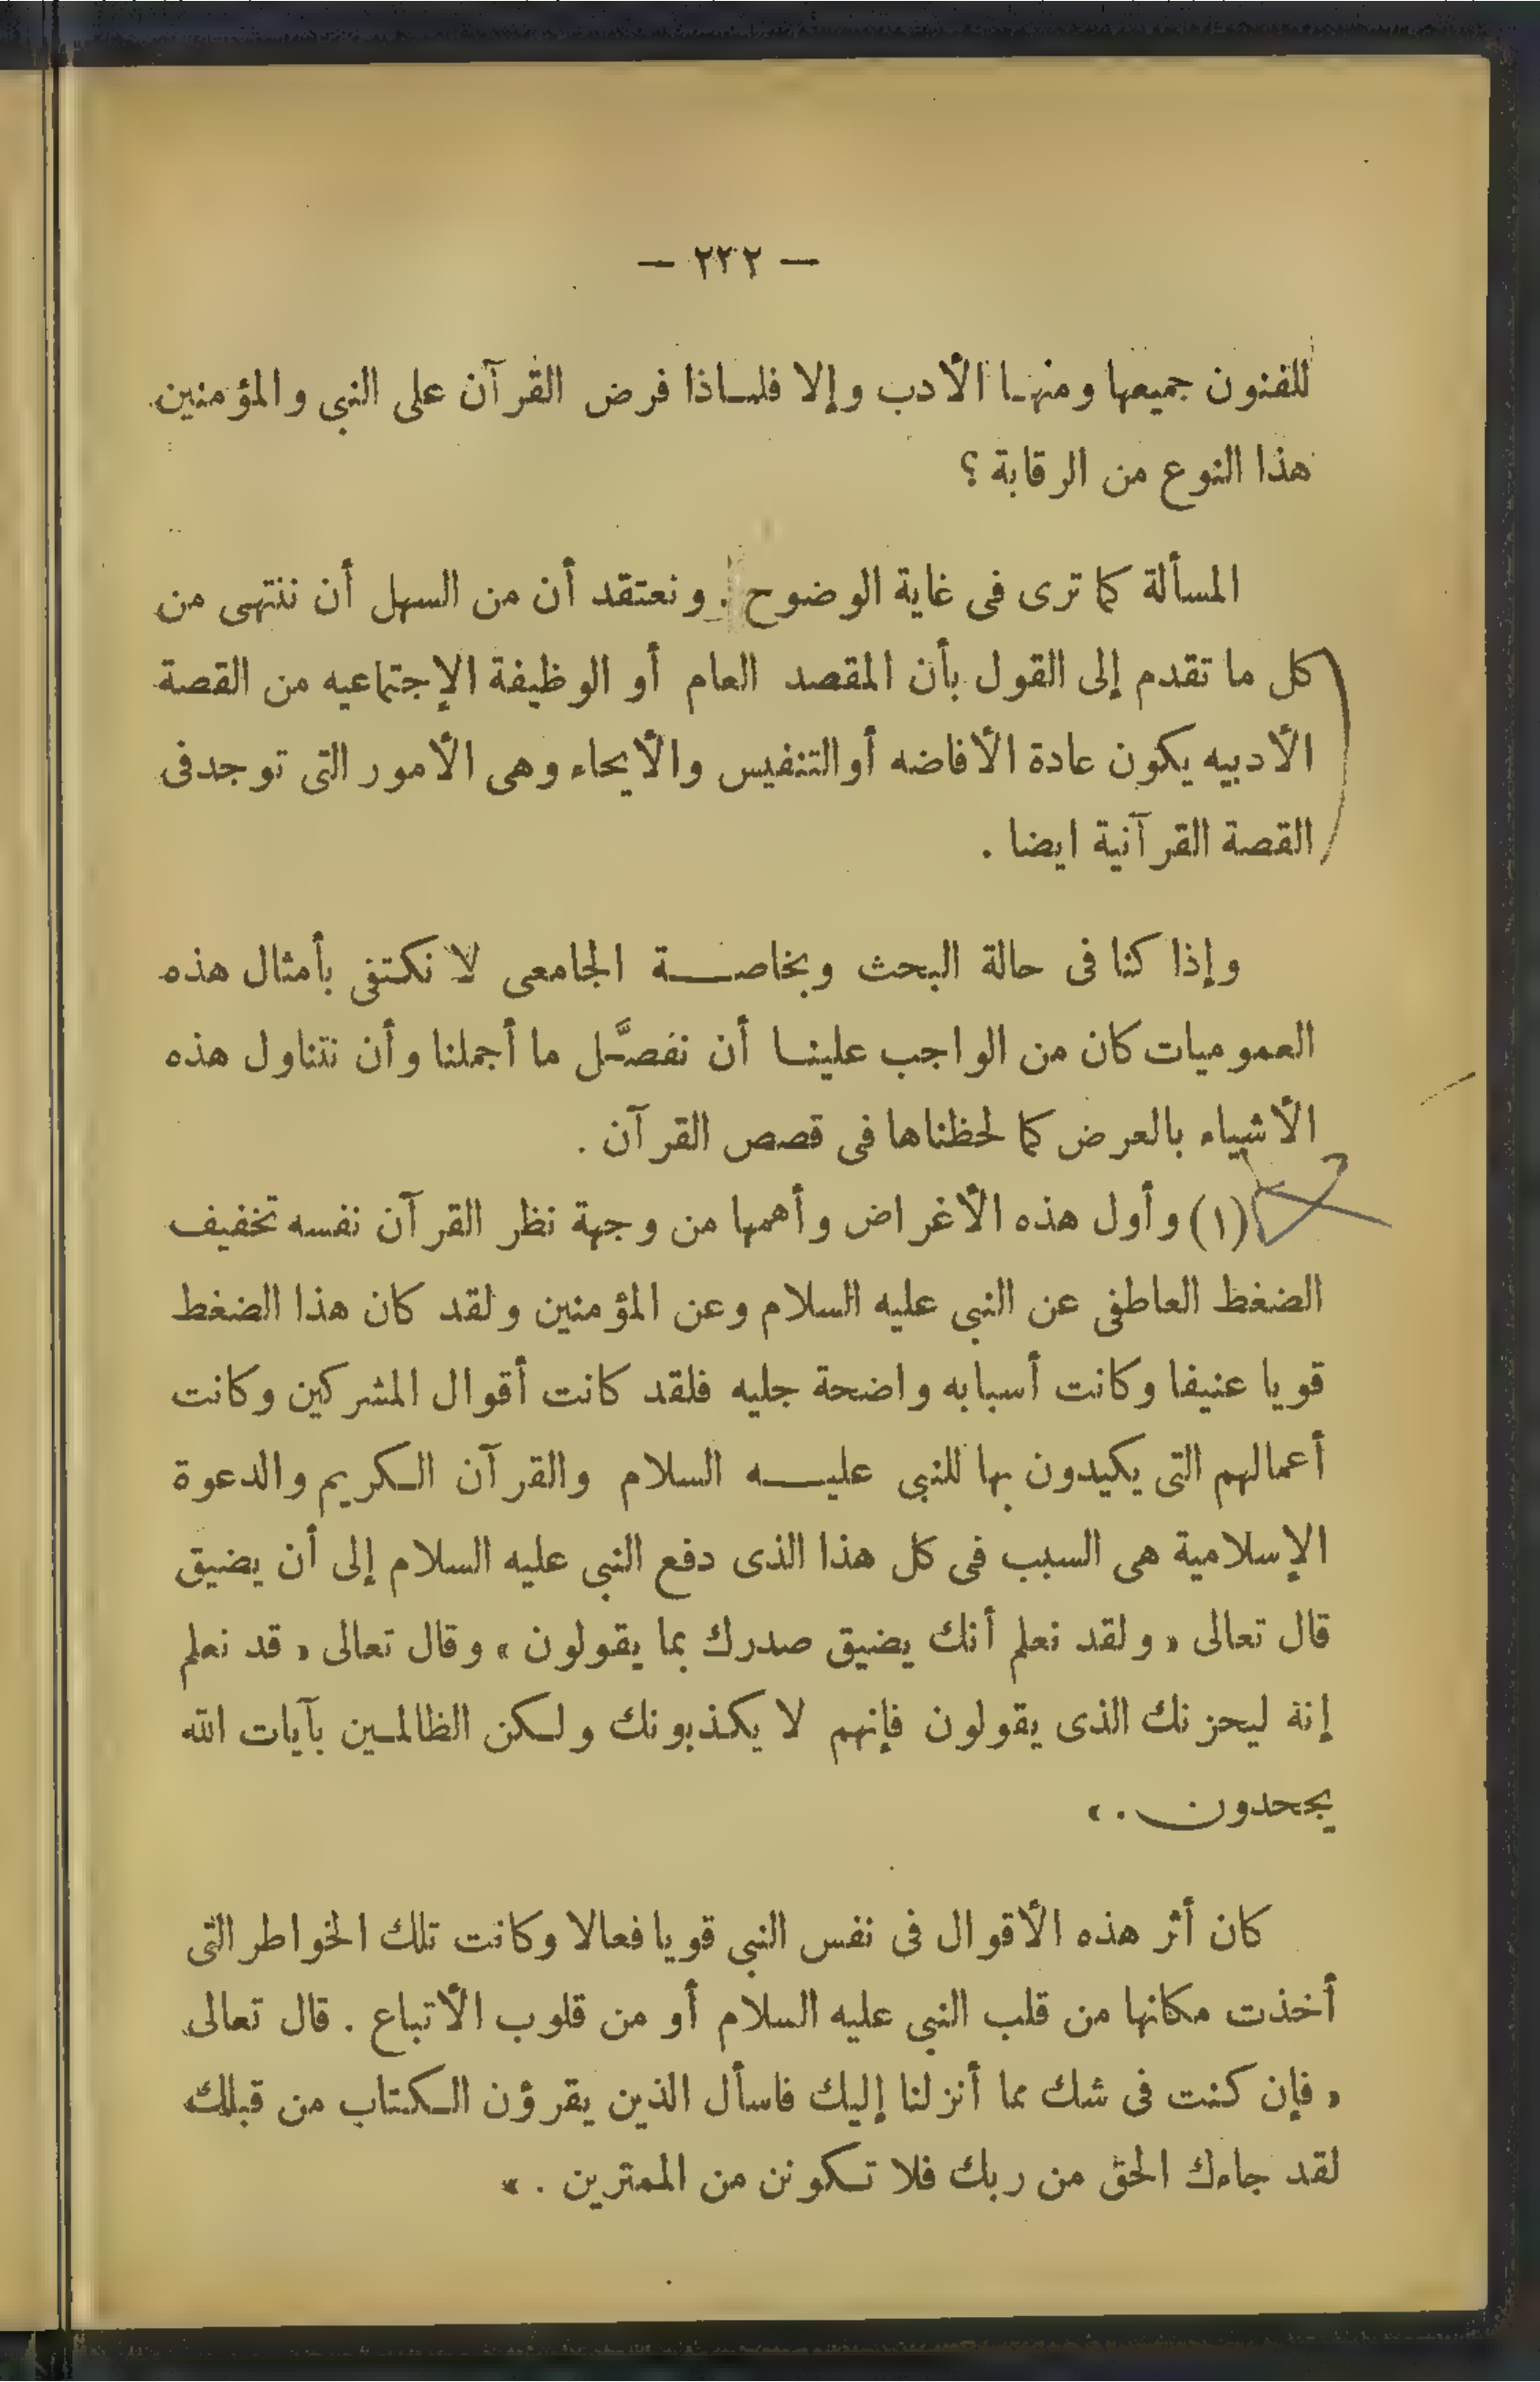 — ٢٢٢ —
للفنون جميعها ومنهـا الأدب وإلا فلمـاذا فرض القرآن على النبى والمؤمنين
هذا النوع من الرقابة ؟
المسألة كما ترى فى غاية الوضوح . ونعتقد أن من السهل أن ننتهى من
كل ما تقدم إلى القول بأن المقصد العام أو الوظيفة الإجتماعيه من القصة
الأدبيه يكون عادة الأفاضه أوالتنفيس والأيحاء وهى الأمور التى توجدفى
القصة القرآنية ايضا .
وإذا كنا فى حالة البحث وبخاصـــة الجامعى لا نكتفى بأمثال هذه
العموميات كان من الواجب علينـا أن نفصـَّل ما أجملنا وأن نتناول هذه
الأشياء بالعرض كما لحظناها فى قصص القرآن .
(١) وأول هذه الأغراض وأهمها من وجهة نظر القرآن نفسه تخفيف
الضغط العاطفى عن النبى عليه السلام وعن المؤمنين ولقد كان هذا الضغط
قويا عنيفا وكانت أسبابه واضحة جليه فلقد كانت أقوال المشركين وكانت
أعمالهم التى يكيدون بها للنبى عليـــه السلام والقرآن الـكريم والدعوة
الإسلامية هى السبب فى كل هذا الذى دفع النبى عليه السلام إلى أن يضيق
قال تعالى « ولقد نعلم أنك يضيق صدرك بما يقولون » وقال تعالى « قد نعلم
إنة ليحزنك الذى يقولون فإنهم لا يكذبونك ولـكن الظالمـين بآيات الله
يجحدون . »
كان أثر هذه الأقوال فى نفس النبى قويا فعالا وكانت تلك الخواطر التى
أخذت مكانها من قلب النبى عليه السلام أو من قلوب الأتباع . قال تعالى
« فإن كنت فى شك مما أنزلنا إليك فاسأل الذين يقرؤن الـكتاب من قبلك
لقد جاءك الحق من ربك فلا تـكونن من الممترين . »